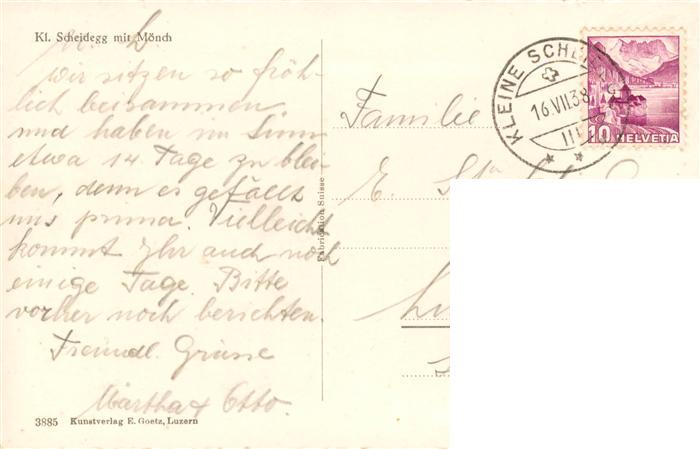 Kl. Scheidegg mit Mönch
M. L
Wir sitzen so fröh-
lich beisammen
und haben im Sinn
etwa 14 Tage zu blei-
ben, denn es gefällt
uns prima. Vielleicht
kommt Ihr auch noch
einige Tage. Bitte
vorher noch berichten.
Freundl. Grüsse
Martha & Otto.
3885 Kunstverlag E. Goetz, Luzern
Fabrication Suisse
KLEINE SCH
16.VII.38
10 HELVETIA
Familie
E.